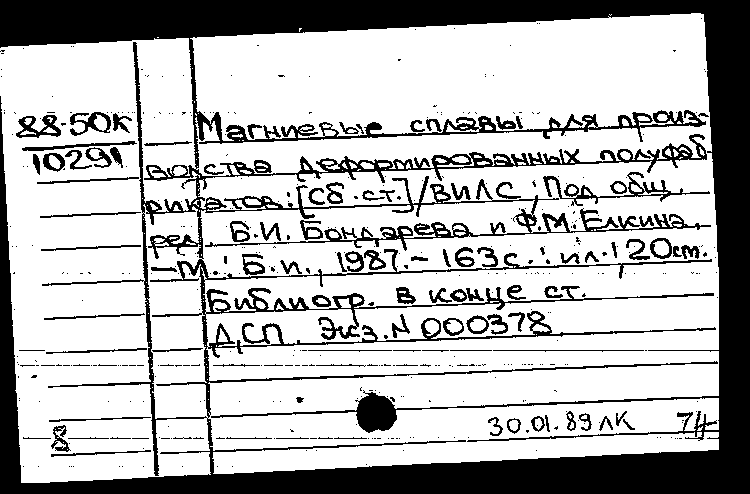 88-50К
10291
Магниевые сплавы для произ-
водства деформированных полуфаб-
рикатов: [Сб. ст.] / ВИЛС; Под общ.
ред. Б.И. Бондарева и Ф.М. Елкина.
— М.: Б.и., 1987. — 163 с.: ил.; 20 см.
Библиогр. в конце ст.
ДСП. Экз. N 000378
30.01.89 ЛК
8